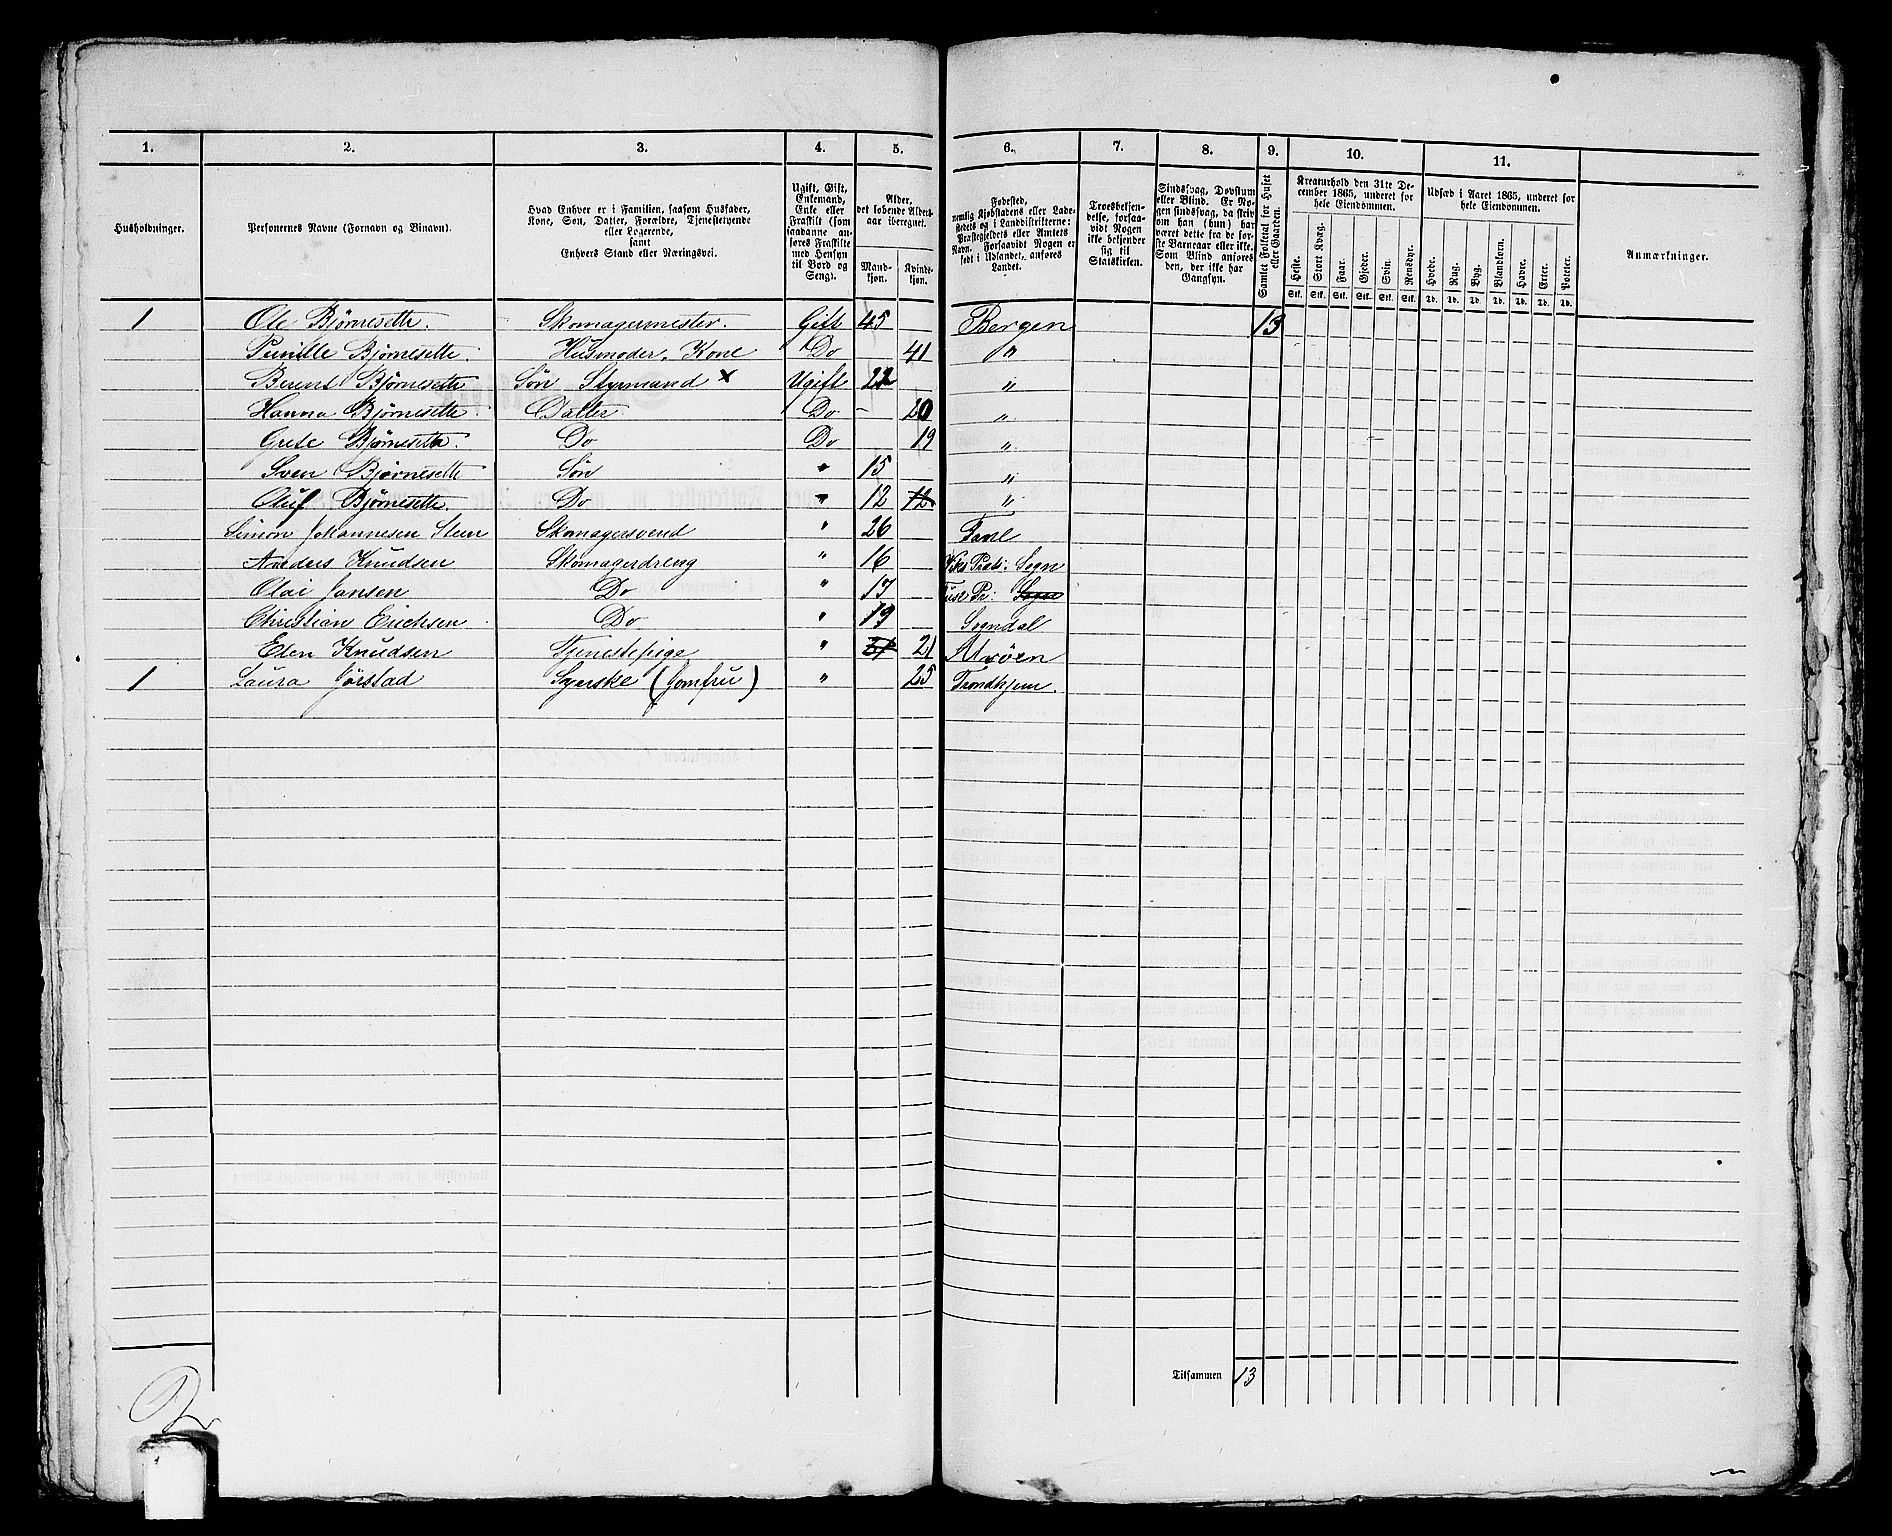 1. 2. 3. 4. 5. 6. 7. 8. 9. 10. 11.
Husholdninger.
Personernes Navne (Fornavn og Binavn).
Hvad Enhver er i Familien, saasom Husfader,
Kone, Søn, Datter, Forældre, Tjenestetyende
eller Logerende,
samt
Enhvers Stand eller Næringsvei.
Ugift, Gift,
Enkemand,
Enke eller
Fraskilt (som
saadanne an-
føres Fraskilte
med Hensyn
til Bord og
Seng).
Alder,
det løbende Alders-
aar iberegnet.
Mand-
kjøn.
Kvinde-
kjøn.
Fødested,
nemlig Kjøbstadens eller Lade-
stedets og i Landdistrikterne:
Præstegjeldets eller Amtets
Navn. Forsaavidt Nogen er
født i Udlandet, anføres
Landet.
Troesbekjen-
delse, forsaa-
vidt Nogen
ikke bekjender
sig til
Statskirken.
Sindssvag, Døvstum
eller Blind. Er No-
gen sindssvag, da skriv
om han (hun) har
været dette fra de før-
ste Barneaar eller ikke.
Som Blind anføres
den, der ikke har
Gangsyn.
Samlet Folketal for Huset
eller Gaarden.
Kreaturhold den 31te De-
cember 1865, underet for
hele Eiendommen.
Heste. Stort Kvæg. Faar. Gjeder. Svin. Rensdyr.
Stk. Stk. Stk. Stk. Stk. Stk.
Udsæd i Aaret 1865, underet for
hele Eiendommen.
Hvede. Rug. Byg. Blandkorn. Havre. Erter. Poteter.
Td. Td. Td. Td. Td. Td. Td.
Anmærkninger.
1 Ole Bjørnesette. Skomagermester. Gift 45 Bergen 13
Bjørnesette. Husmoder. Kone Do 41 "
Berent Bjørnesette Søn Styrmand x Ugift 22 "
Hanna Bjørnesette. Datter Do - 20 "
Grete Bjørnesette. Do Do 19 "
Sven Bjørnesette Søn " 15 "
Oluf Bjørnesette Do " 12 12 "
Simon Johannesen Steen Skomagersvend " 26 Fane
Anders Knudsen Skomagerdreng " 16 Sogn
Olai Jansen Do " 17 Pr: Sogn
Christian Erichsen Do " 19 Sogndal
Elen Knudsen Tjenestepige " 21 21 Alvøen
1 Laura Jørstad Syerske (Jomfru) " 25 Trondhjem.
Tilsammen 13